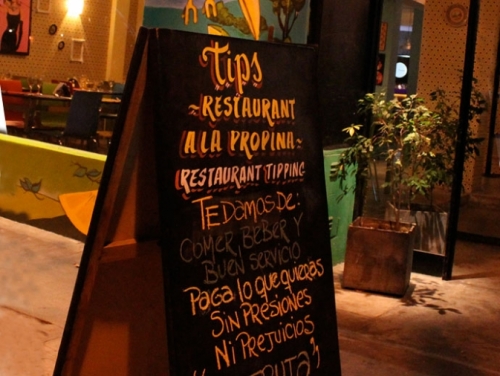 Tips
~RESTAURANT
A LA PROPINA~
RESTAURANT TIPPING
TE DAMOS DE:
COMER, BEBER Y
BUEN SERVICIO
PAGA lo que quieras
SIN PRESIONES
NI PREJUICIOS